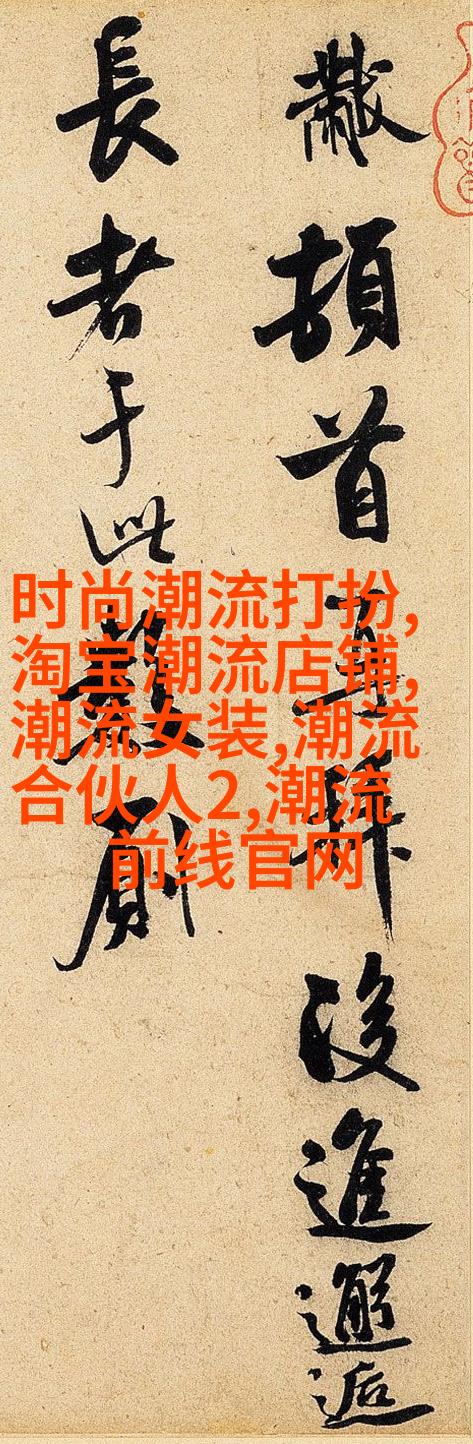 黻頓首再拜後進邂逅
長者于此數厠
时尚潮流打扮,
淘宝潮流店铺,
潮流女装,潮流
合伙人2,潮流
前线官网